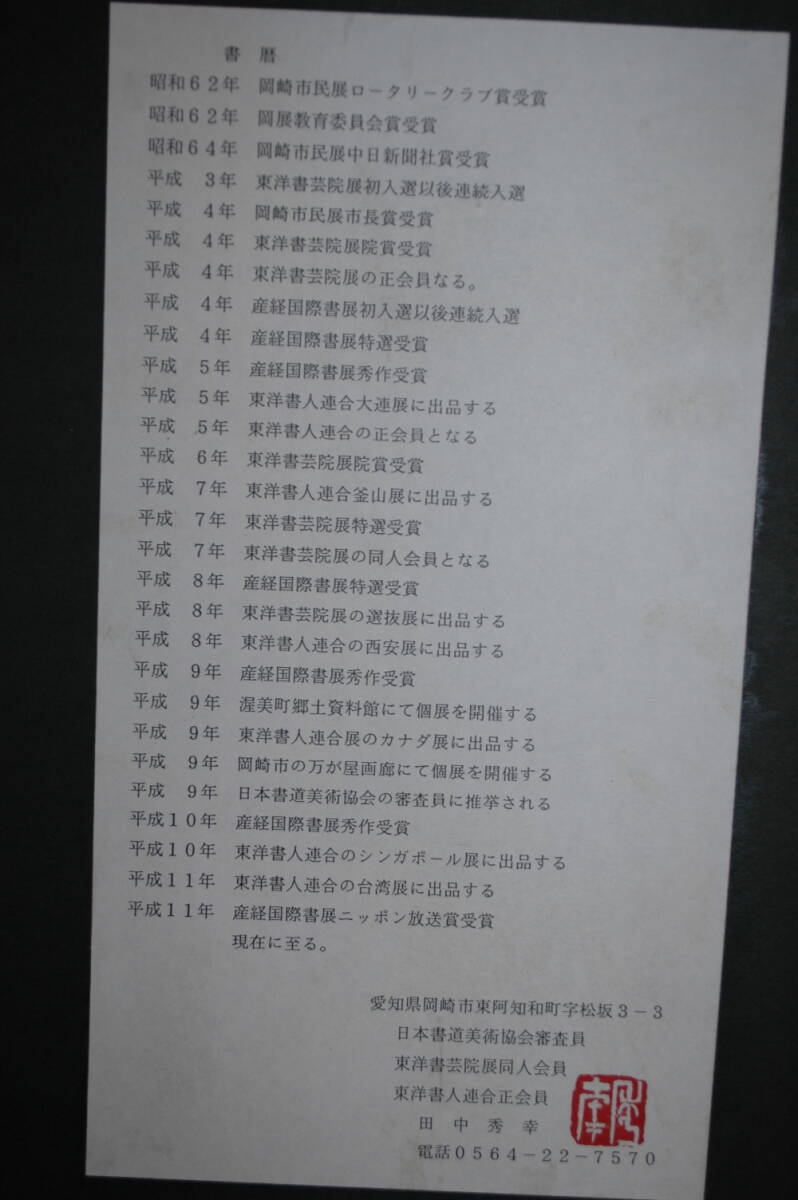 書 暦
昭和６２年 岡崎市民展ロータリークラブ賞受賞
昭和６２年 岡展教育委員会賞受賞
昭和６４年 岡崎市民展中日新聞社賞受賞
平成 ３年 東洋書芸院展初入選以後連続入選
平成 ４年 岡崎市民展市長賞受賞
平成 ４年 東洋書芸院展院賞受賞
平成 ４年 東洋書芸院展の正会員なる。
平成 ４年 産経国際書展初入選以後連続入選
平成 ４年 産経国際書展特選受賞
平成 ５年 産経国際書展秀作受賞
平成 ５年 東洋書人連合大連展に出品する
平成 ５年 東洋書人連合の正会員となる
平成 ６年 東洋書芸院展院賞受賞
平成 ７年 東洋書人連合釜山展に出品する
平成 ７年 東洋書芸院展特選受賞
平成 ７年 東洋書芸院展の同人会員となる
平成 ８年 産経国際書展特選受賞
平成 ８年 東洋書芸院展の選抜展に出品する
平成 ８年 東洋書人連合の西安展に出品する
平成 ９年 産経国際書展秀作受賞
平成 ９年 渥美町郷土資料館にて個展を開催する
平成 ９年 東洋書人連合展のカナダ展に出品する
平成 ９年 岡崎市の万が屋画廊にて個展を開催する
平成 ９年 日本書道美術協会の審査員に推挙される
平成１０年 産経国際書展秀作受賞
平成１０年 東洋書人連合のシンガポール展に出品する
平成１１年 東洋書人連合の台湾展に出品する
平成１１年 産経国際書展ニッポン放送賞受賞
現在に至る。
愛知県岡崎市東阿知和町字松坂３－３
日本書道美術協会審査員
東洋書芸院展同人会員
東洋書人連合正会員
田 中 秀 幸
電話０５６４－２２－７５７０